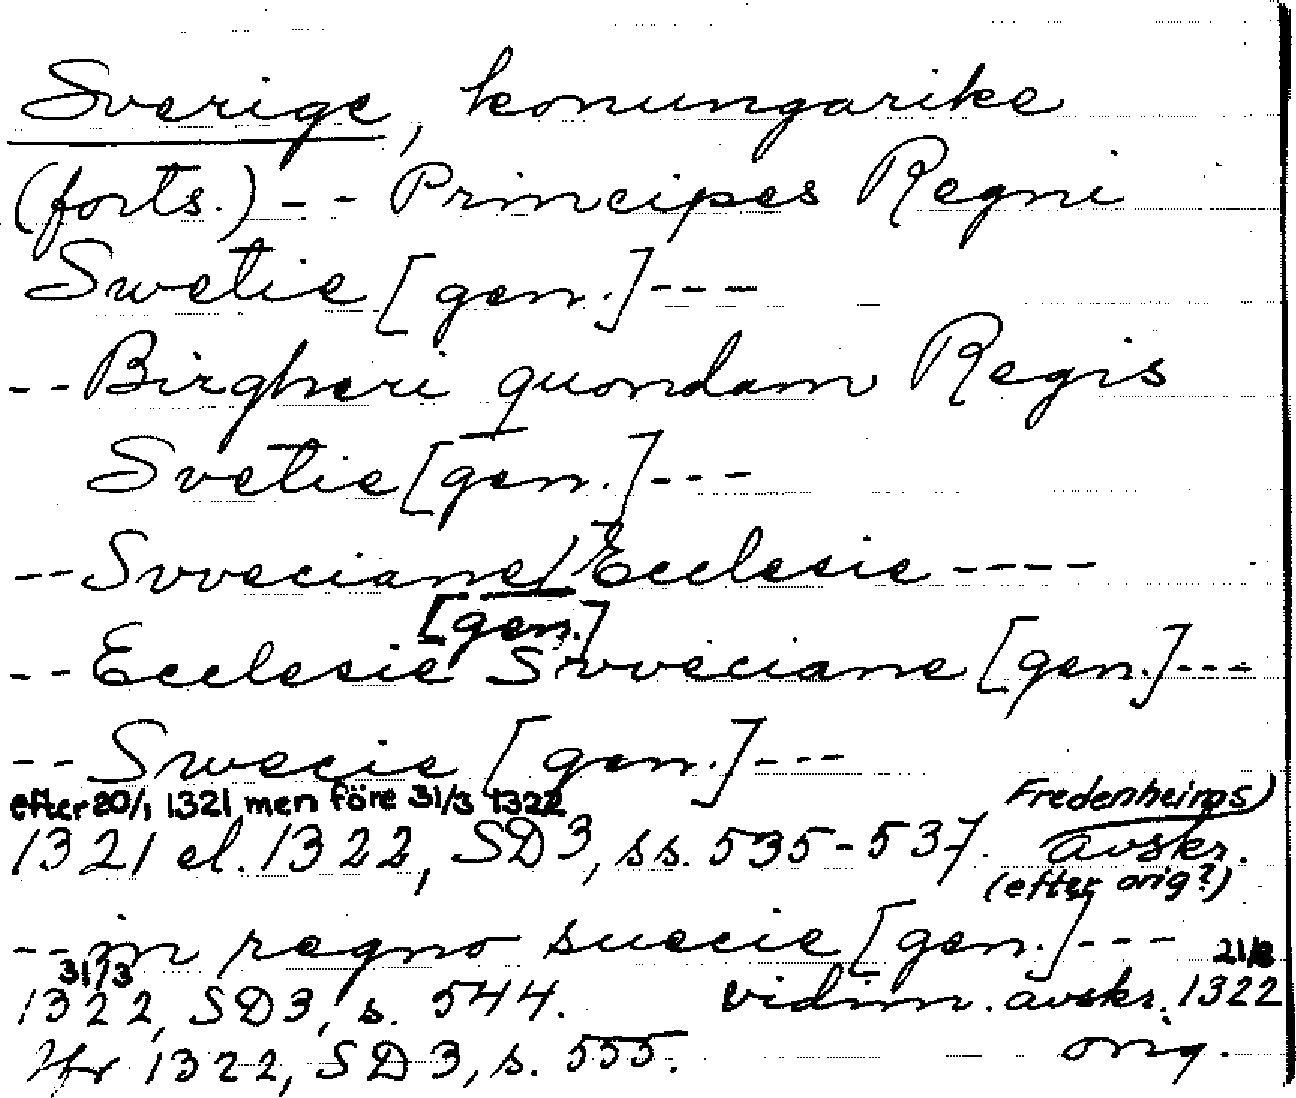 Sverige, konungarike
(forts.) -- Principes Regni
Swetie [gen.] ---
-- Birgheri quondam Regis
Svetie [gen.] ---
-- Svveciane/Ecclesie ----
[gen.]
-- Ecclesie Svveciane [gen.] ---
-- Swecie [gen.] ---
efter 20/1 1321 men före 31/3 1322
Fredenheims)
1321 el. 1322, SD3, ss. 535-537. avskr.
(efter orig?)
-- in regno suecie [gen.] ---
31/3 21/8
1322, SD3, s. 544. vidim. avskr. 1322
Jfr 1322, SD3, s. 555. orig.